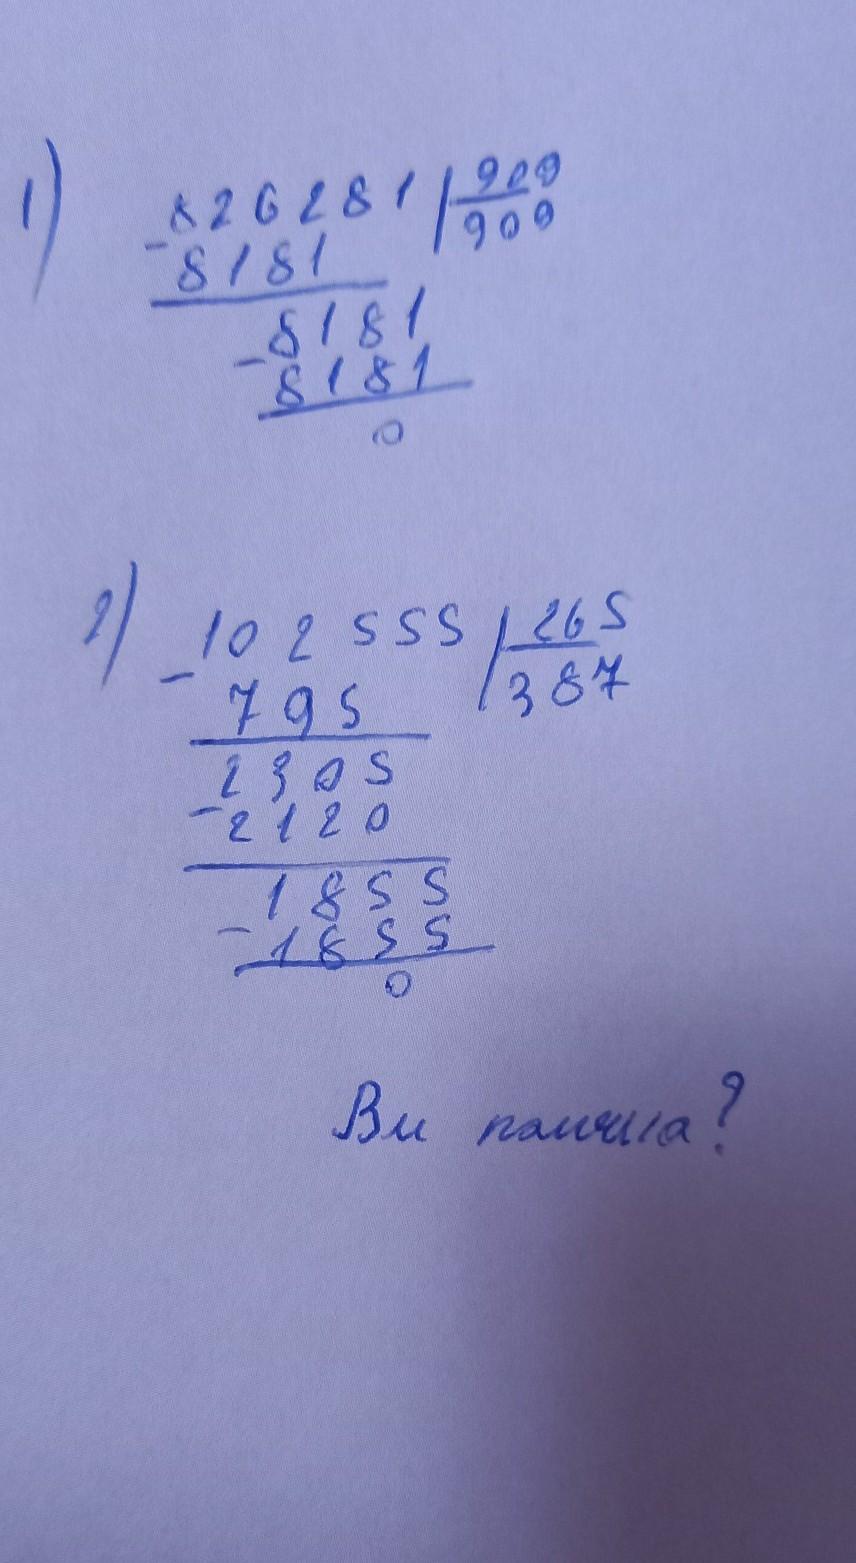 1)
826281 909
8181 909
8181
8181
0
2)
102555 265
795 387
2305
2120
1855
1855
0
Ви